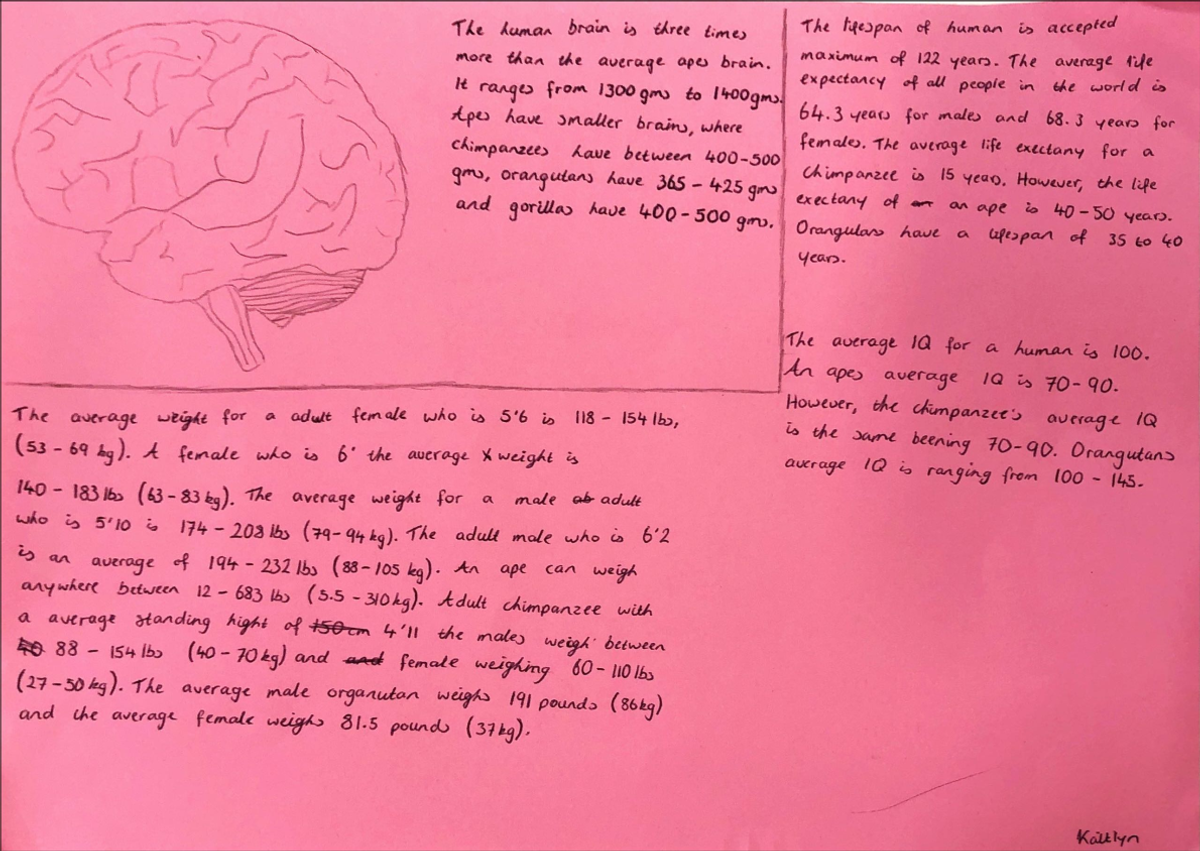 The human brain is three times
more than the average apes brain.
It ranges from 1300 gms to 1400gms.
Apes have smaller brains, where
chimpanzees have between 400-500
gms, orangutans have 365 - 425 gms
and gorillas have 400 - 500 gms.
The lifespan of human is accepted
maximum of 122 years. The average life
expectancy of all people in the world is
64.3 years for males and 68.3 years for
females. The average life exectany for a
Chimpanzee is 15 years. However, the life
exectany of an ape is 40 - 50 years.
Orangutans have a lifespan of 35 to 40
years.
The average IQ for a human is 100.
An apes average IQ is 70-90.
However, the chimpanzee's average IQ
is the same beening 70-90. Orangutans
average IQ is ranging from 100 - 145.
The average weight for a adult female who is 5'6 is 118 - 154 lbs,
(53 - 69 kg). A female who is 6' the average weight is
140 - 183 lbs (63 - 83 kg). The average weight for a male adult
who is 5'10 is 174 - 208 lbs (79 - 94 kg). The adult male who is 6'2
is an average of 194 - 232 lbs (88 - 105 kg). An ape can weigh
anywhere between 12 - 683 lbs (5.5 - 310 kg). Adult chimpanzee with
a average standing hight of 150 cm 4'11 the males weigh between
40 88 - 154 lbs (40 - 70 kg) and and female weighing 60 - 110 lbs
(27 - 50 kg). The average male organutan weighs 191 pounds (86 kg)
and the average female weighs 81.5 pounds (37 kg).
Kaitlyn